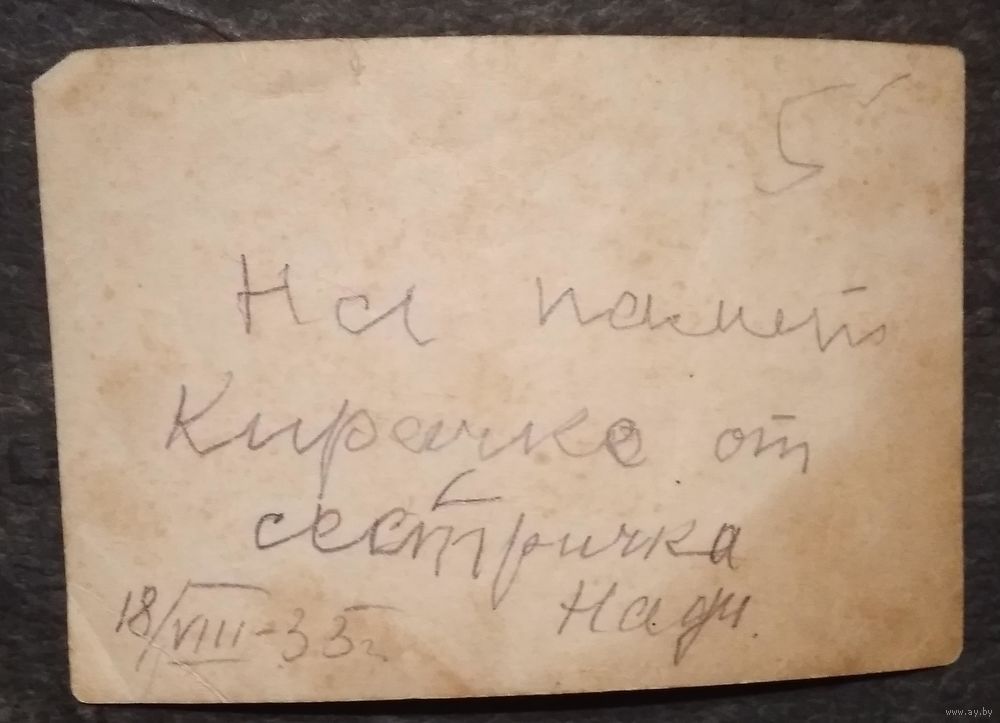 5
На память
Кирочке от
сестричка
Нади.
18/VIII-35г.
www.ay.by